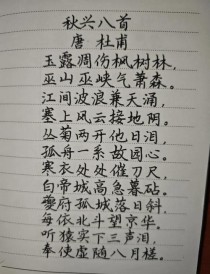 秋兴八首
唐 杜甫
玉露凋伤枫树林,
巫山巫峡气萧森。
江间波浪兼天涌,
塞上风云接地阴。
丛菊两开他日泪,
孤舟一系故园心。
寒衣处处催刀尺,
白帝城高急暮砧。
夔府孤城落日斜,
每依北斗望京华。
听猿实下三声泪,
奉使虚随八月槎。